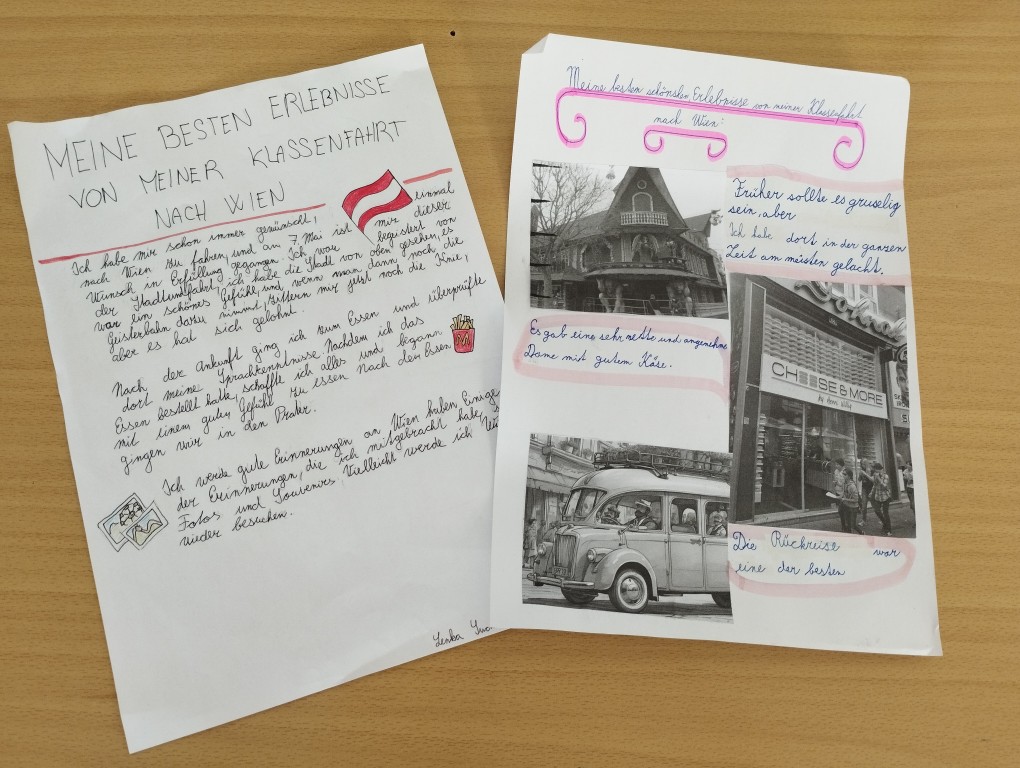 MEINE BESTEN ERLEBNISSE
VON MEINER KLASSENFAHRT
NACH WIEN
Ich habe mir schon immer gewünscht, einmal
nach Wien zu fahren, und am 7. Mai ist mir dieser
Wunsch in Erfüllung gegangen. Ich war begeistert von
der Stadtrundfahrt, ich habe die Stadt von oben gesehen, es
war ein schönes Gefühl, und wenn man dann noch die
Geisterbahn dazu nimmt, zittern mir jetzt noch die Knie,
aber es hat sich gelohnt.
Nach der Ankunft ging ich zum Essen und überprüfte
dort meine Sprachkenntnisse. Nachdem ich das
Essen bestellt hatte, schaffte ich alles und begann
mit einem guten Gefühl zu essen Nach dem Essen
gingen wir in den Prater.
Ich werde gute Erinnerungen an Wien haben. Einige
der Erinnerungen, die ich mitgebracht habe,
Fotos und Souvenirs, Vielleicht werde ich
wieder besuchen.
Lenka
Meine besten schönsten Erlebnisse von meiner Klassenfahrt
nach Wien:
Früher sollte es gruselig
sein, aber
Ich habe dort in der ganzen
Zeit am meisten gelacht.
Es gab eine sehr nette und angenehme
Dame mit gutem Käse.
CHEESE & MORE
Die Rückreise war
eine der besten